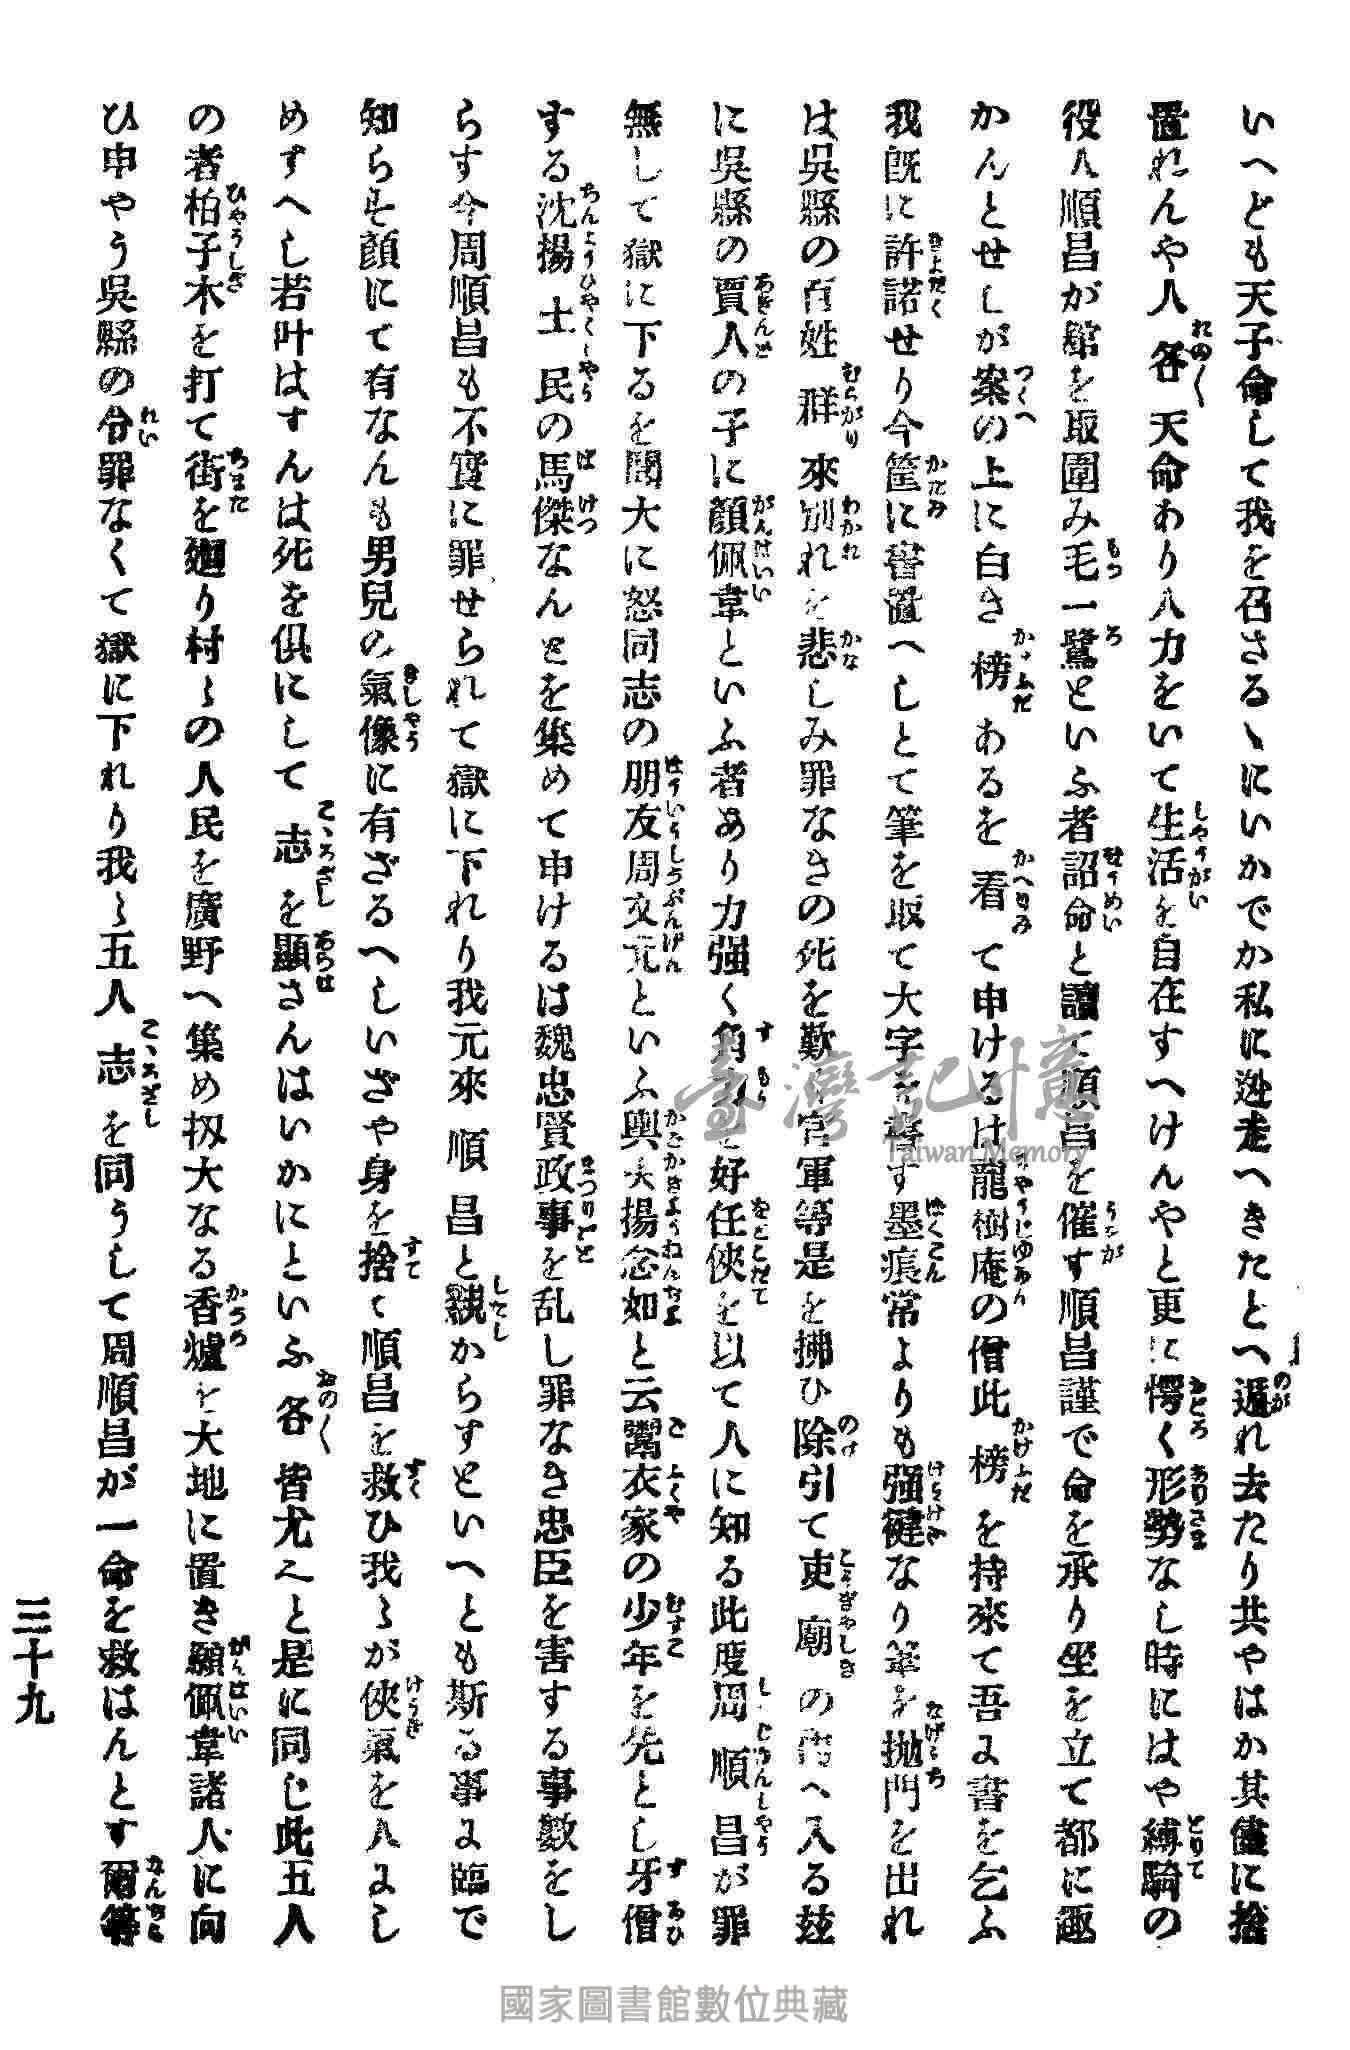 いへども天子命して我を召さるゝにいかでか私に迯走へきたとへ遁れ去たり共やはか其儘に捨
置れんや人各天命あり人力をいて生活を自在すへけんやと更に愕く形勢なし時にはや縛騎の
役人順昌が舘を取圍み毛一鷺といふ者詔命と讀て順昌を催す順昌謹で命を承り坐を立て都に趣
かんとせしが案の上に白き榜あるを看て申けるは龍樹庵の僧此榜を持來て吾に書を乞ふ
我既に許諾せり今筐に書置へしとて筆を取て大字を書す墨痕常よりも强健なり筆を抛門を出れ
は吳縣の百姓群來別れを悲しみ罪なきの死を歎く官軍等是を拂ひ除引て吏廟の内へ入る玆
に吳縣の賈人の子に顏佩韋といふ者あり力强く角力を好任俠を以て人に知る此度周順昌が罪
無して獄に下るを聞大に怒同志の朋友周文元といふ輿夫揚念如と云鬻衣家の少年を先とし牙僧
する沈揚士民の馬傑なんとを集めて申けるは魏忠賢政事を乱し罪なき忠臣を害する事數をし
らす今周順昌も不實に罪せられて獄に下れり我元來順昌と親からすといへとも斯る事に臨で
知らず顏にて有なんも男兒の氣像に有ざるへしいざや身を捨て順昌を救ひ我々が俠氣を人にし
めすへし若叶はすんは死を俱にして志を顯さんはいかにといふ各皆尤と是に同じ此五人
の者柏子木を打て街を廻り村々の人民を廣野へ集め扨大なる香爐を大地に置き顏佩韋諸人に向
ひ申やう吳縣の令罪なくて獄に下れり我々五人志を同うして周順昌が一命を救はんとす爾等
三十九
臺灣記憶
Taiwan Memory
國家圖書館數位典藏